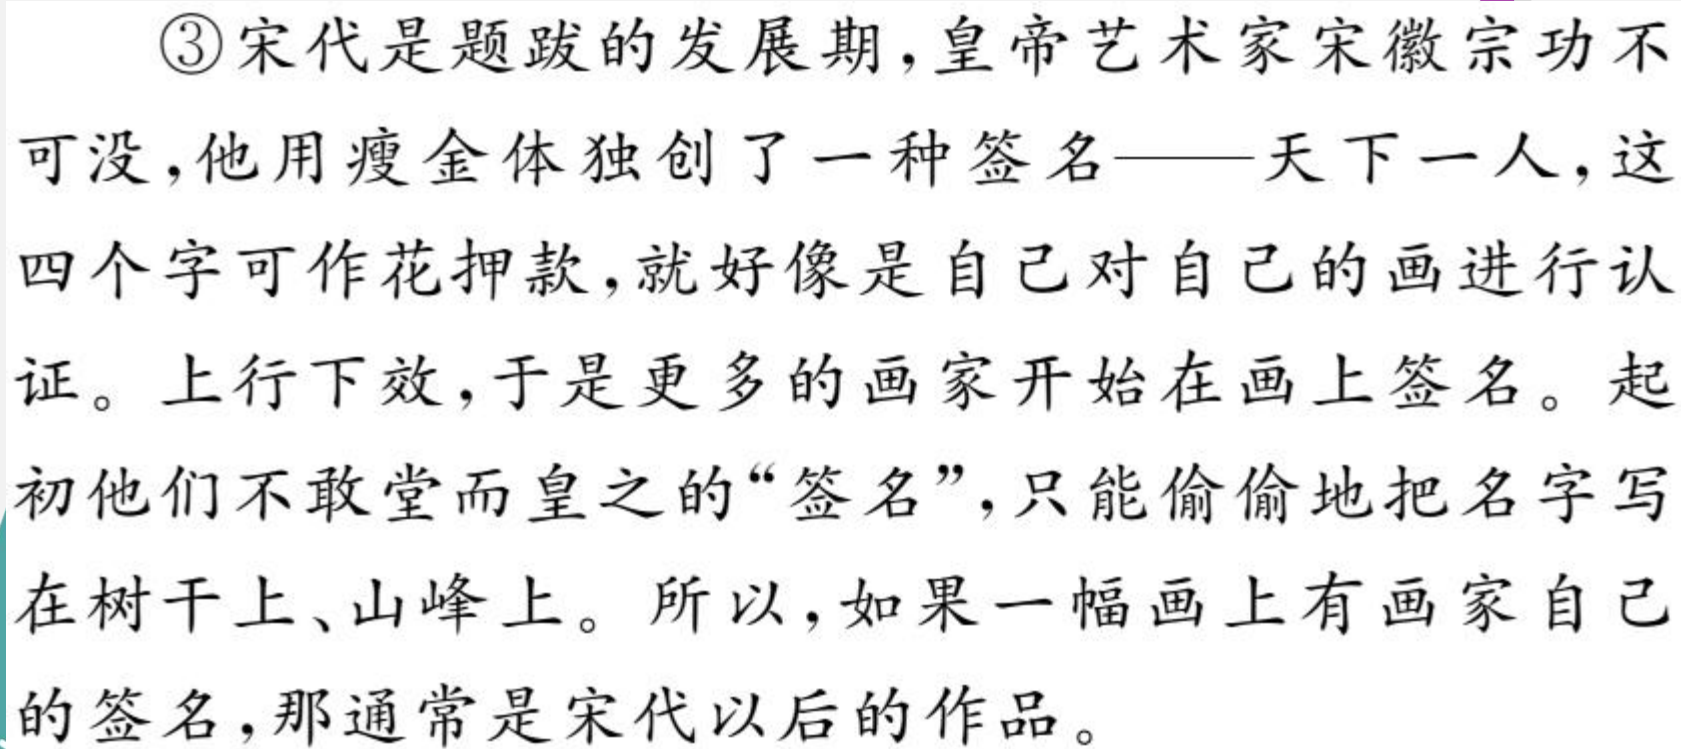 ③宋代是题跋的发展期，皇帝艺术家宋徽宗功不
可没，他用瘦金体独创了一种签名——天下一人，这
四个字可作花押款，就好像是自己对自己的画进行认
证。上行下效，于是更多的画家开始在画上签名。起
初他们不敢堂而皇之的“签名”，只能偷偷地把名字写
在树干上、山峰上。所以，如果一幅画上有画家自己
的签名，那通常是宋代以后的作品。